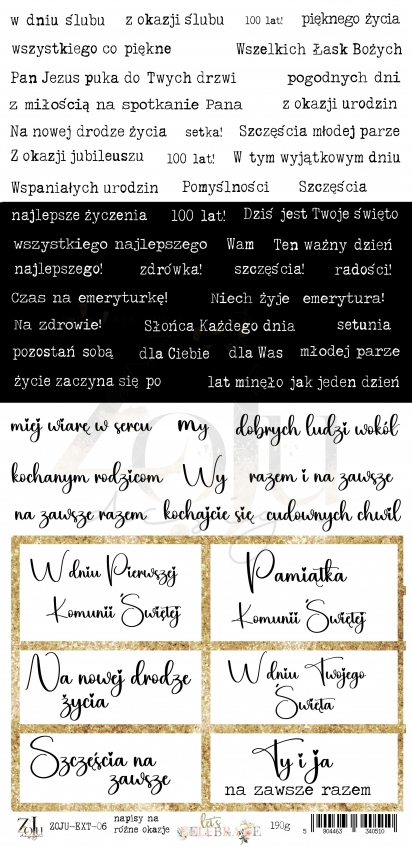 w dniu ślubu z okazji ślubu 100 lat! pięknego życia
wszystkiego co piękne Wszelkich Łask Bożych
Pan Jezus puka do Twych drzwi pogodnych dni
z miłością na spotkanie Pana z okazji urodzin
Na nowej drodze życia setka! Szczęścia młodej parze
Z okazji jubileuszu 100 lat! W tym wyjątkowym dniu
Wspaniałych urodzin Pomyślności Szczęścia
najlepsze życzenia 100 lat! Dziś jest Twoje święto
wszystkiego najlepszego Wam Ten ważny dzień
najlepszego! zdrówka! szczęścia! radości!
Czas na emeryturkę! Niech żyje emerytura!
Na zdrowie! Słońca Każdego dnia setunia
pozostań sobą dla Ciebie dla Was młodej parze
życie zaczyna się po lat minęło jak jeden dzień
miej wiarę w sercu My dobrych ludzi wokół
kochanym rodzicom Wy razem i na zawsze
na zawsze razem kochajcie się cudownych chwil
W dniu Pierwszej
Komunii Świętej
Pamiątka
Komunii Świętej
Na nowej drodze
życia
W dniu Twojego
Święta
Szczęścia na
zawsze
Ty i ja
na zawsze razem
ZoJu
ZOJU-EXT-06
napisy na
różne okazje
let's
CELEBRATE
190g
5 904463 340510